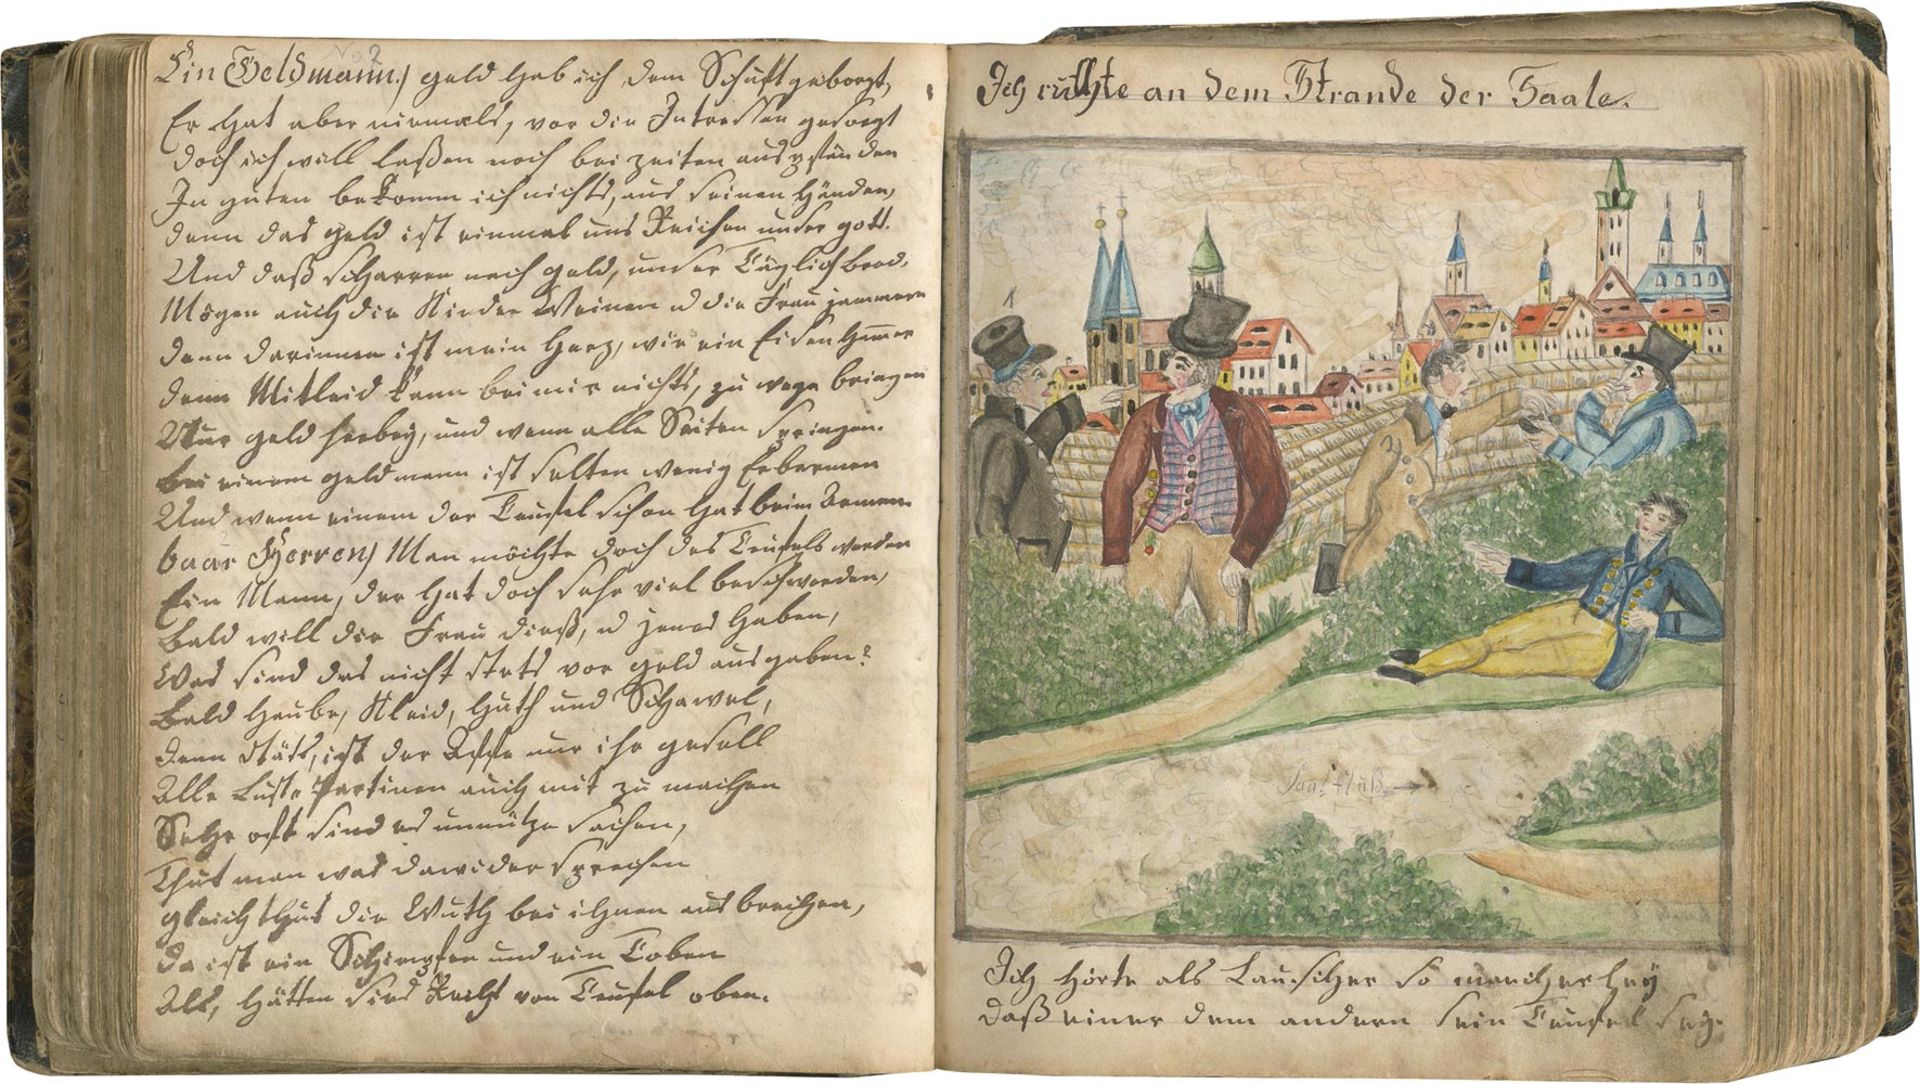 No 2
Ein Geldmann) geld hab ich dem Schuft geborgt,
Er hat aber niemals, vor die Intressen gesorgt
doch ich will laßen noch bei zeiten aus pfänden
In guten bekomm ich nichts, aus seinen Händen,
denn das geld ist einmal uns Reichen unser gott.
Und daß scharren nach geld, unser Täglich brod.
Mögen auch die Kinder Weinen u die Frau jammern
denn darinnen ist mein Herz, wie ein Eisen Hammer
denn Mitleid kann bei mir nichts, zu wege bringen
Nur geld herbey, und wenn alle Seiten springen.
bei einem geldmann ist selten wenig Erbarmen
Und wenn einem der Teufel schon hat beim Armen.
baar Herren) Man möchte doch des Teufels werden
Ein Mann, der hat doch sehr viel beschwerden,
bald will die Frau dieß, u jenes haben,
Was sind das nicht stets vor geld ausgaben?
bald Haube, Kleid, Huth und Schawel,
denn stäts, ist der Affe nur ihr gesell
Alle Lust Partinen auch mit zu machen
Sehr oft sind es unnütze sachen,
Thut man was dawider sprechen
gleich thut die Wuth bei ihnen aus brechen,
da ist ein Schimpfen und ein Toben
Als, hätten sies Recht von Teufel oben.
Ich ruhte an dem Strande der Saale.
1
Saal fluß →
Ich hörte als Lauscher so mancherley
daß einer dem andern sein Teufel sey.